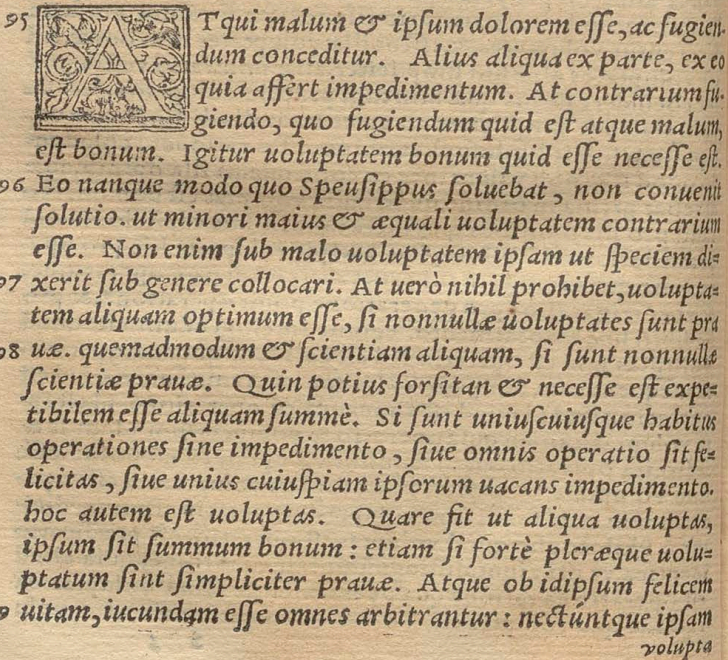 95 ATqui malum & ipſum dolorem eſſe, ac fugien-
dum conceditur. Alius aliqua ex parte, ex eo
quia affert impedimentum. At contrarium fu-
giendo, quo fugiendum quid eſt atque malum,
eſt bonum. Igitur uoluptatem bonum quid eſſe neceſſe eſt.
96 Eo nanque modo quo Speuſippus ſoluebat, non conuenit
ſolutio. ut minori maius & æquali uoluptatem contrarium
eſſe. Non enim ſub malo uoluptatem ipſam ut ſpeciem di=
97 xerit ſub genere collocari. At uerò nihil prohibet, uolupta=
tem aliquam optimum eſſe, ſi nonnullæ uoluptates ſunt pra
98 uæ. quemadmodum & ſcientiam aliquam, ſi ſunt nonnullæ
ſcientiæ prauæ. Quin potius forſitan & neceſſe eſt expe=
tibilem eſſe aliquam ſummè. Si ſunt uniuſcuiuſque habitus
operationes ſine impedimento, ſiue omnis operatio ſit fe=
licitas, ſiue unius cuiuſpiam ipſorum uacans impedimento.
hoc autem eſt uoluptas. Quare fit ut aliqua uoluptas,
ipſum ſit ſummum bonum: etiam ſi fortè pleræque uolu=
ptatum ſint ſimpliciter prauæ. Atque ob idipſum felicem
9 uitam, iucundam eſſe omnes arbitrantur: nectúntque ipſam
volupta